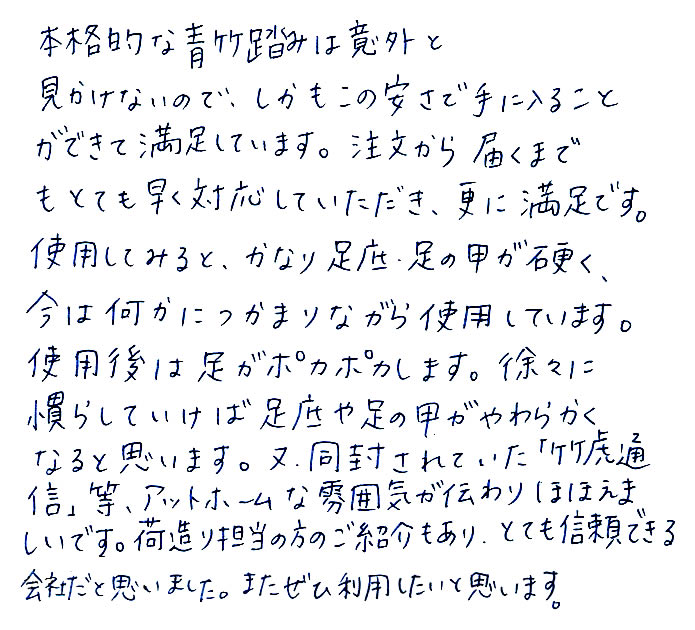 本格的な青竹踏みは意外と
見かけないので、しかもこの安さで手に入ること
ができて満足しています。注文から届くまで
もとても早く対応していただき、更に満足です。
使用してみると、かなり足底・足の甲が硬く、
今は何かにつかまりながら使用しています。
使用後は足がポカポカします。徐々に
慣らしていけば足底や足の甲がやわらかく
なると思います。又、同封されていた「竹虎通
信」等、アットホームな雰囲気が伝わりほほえま
しいです。荷造り担当の方のご紹介もあり、とても信頼できる
会社だと思いました。またぜひ利用したいと思います。